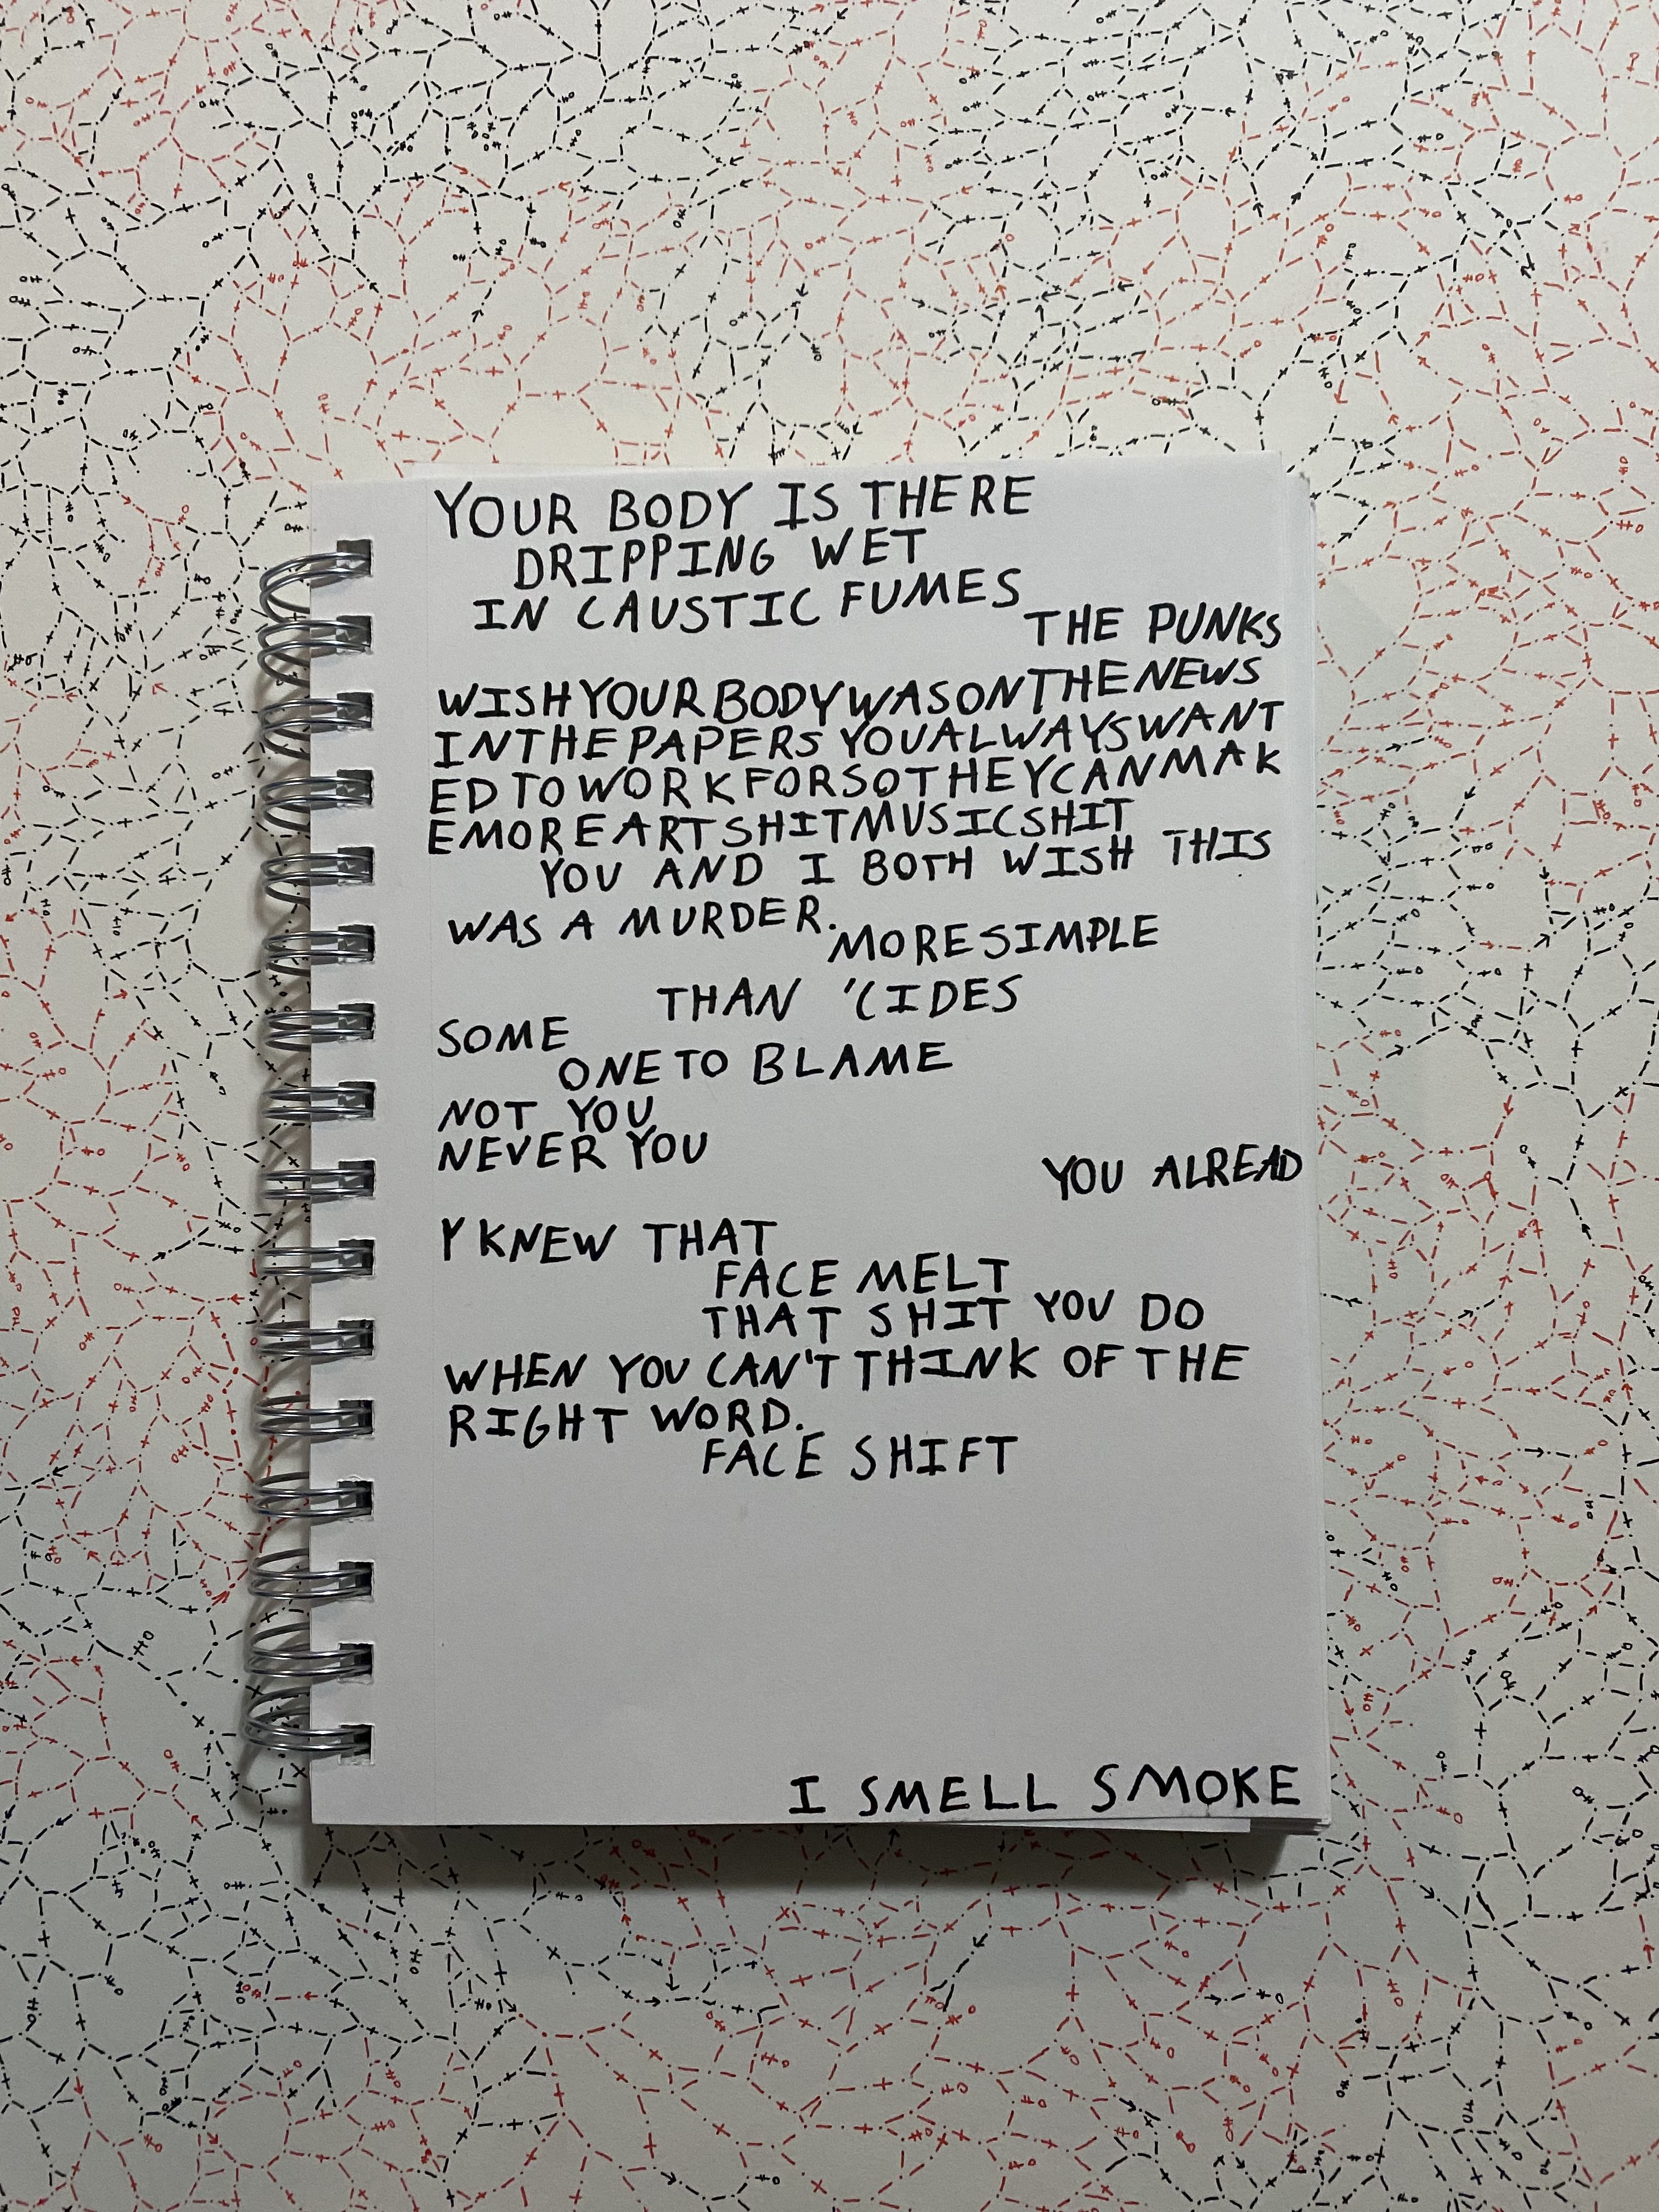 YOUR BODY IS THERE
DRIPPING WET
IN CAUSTIC FUMES
THE PUNKS
WISHYOURBODYWASONTHENEWS
INTHEPAPERSYOUALWAYSWANT
EDTOWORKFORSOTHEYCANMAK
EMOREARTSHITMUSICSHIT
YOU AND I BOTH WISH THIS
WAS A MURDER.
MORE SIMPLE
THAN 'CIDES
SOME
ONE TO BLAME
NOT YOU
NEVER YOU
YOU ALREAD
Y KNEW THAT
FACE MELT
THAT SHIT YOU DO
WHEN YOU CAN'T THINK OF THE
RIGHT WORD.
FACE SHIFT
I SMELL SMOKE